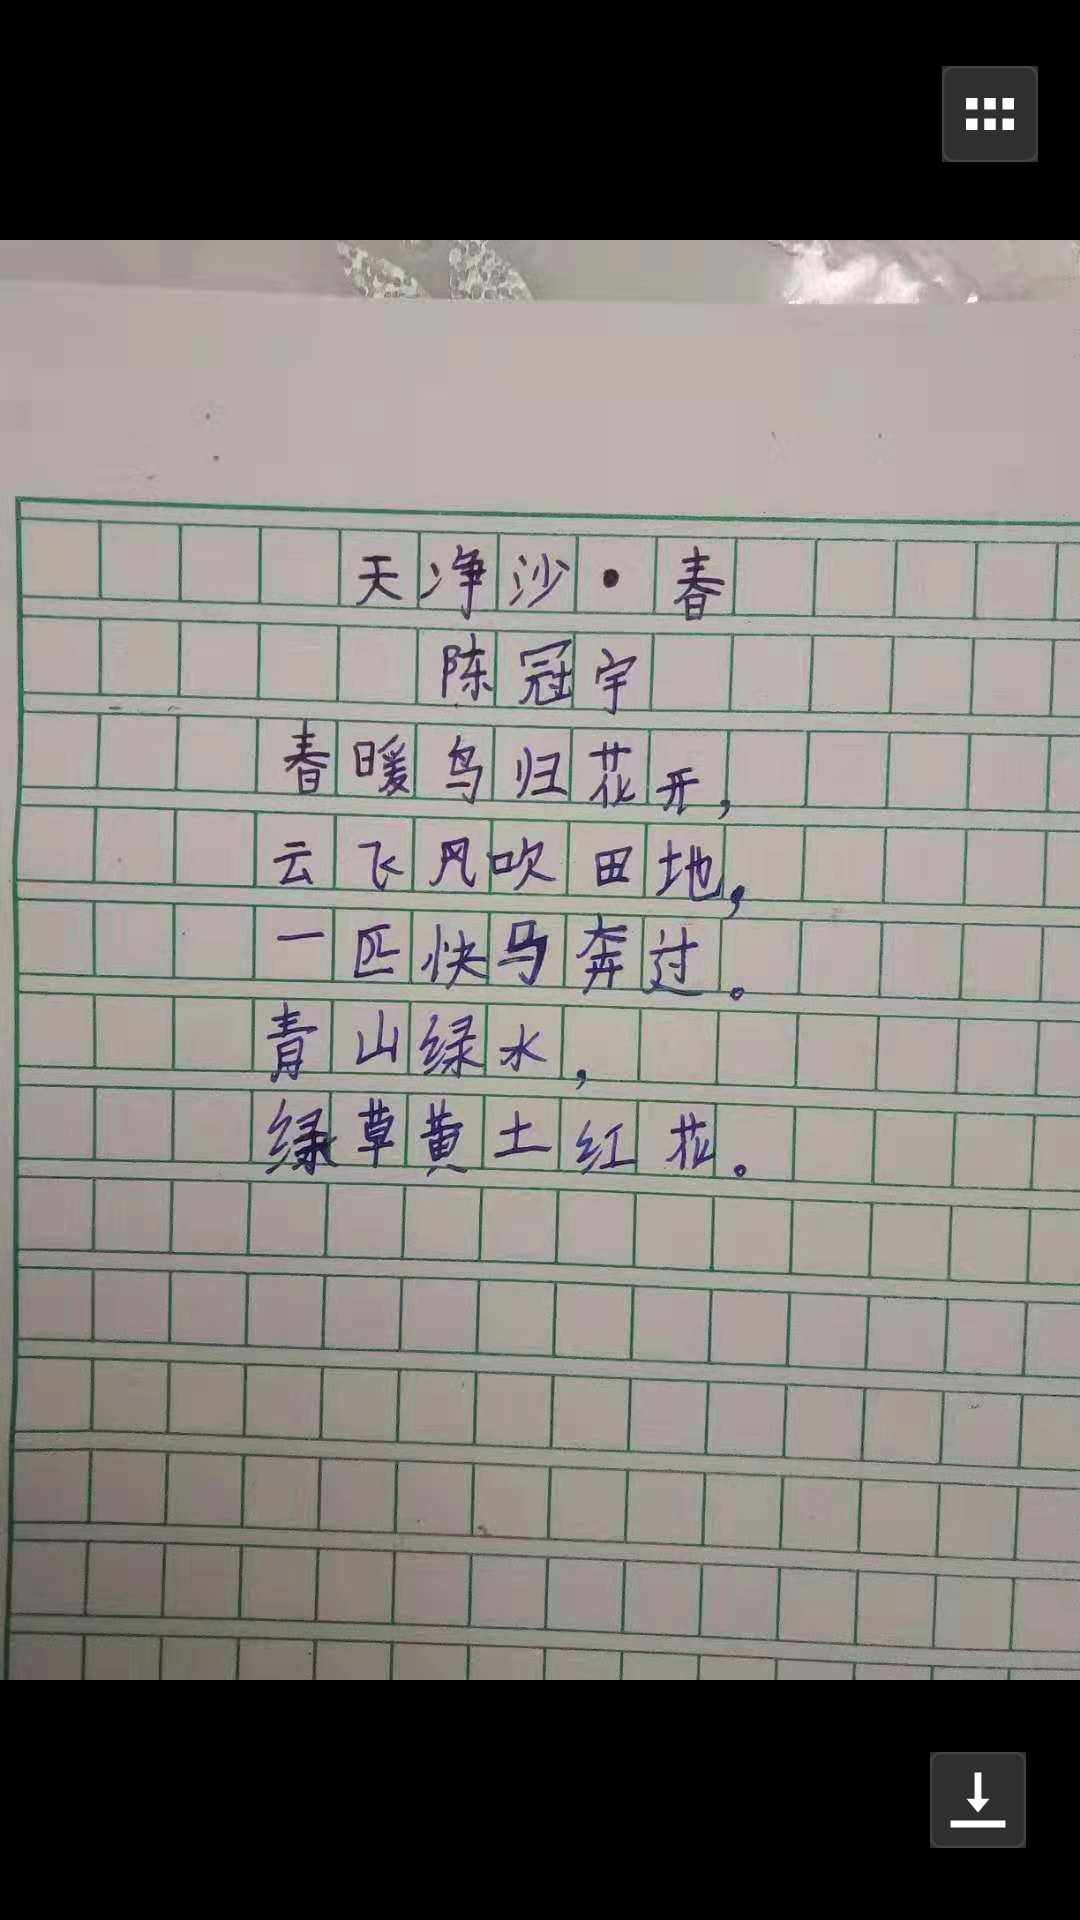 天净沙·春
陈冠宇
春暖鸟归花开，
云飞风吹田地，
一匹快马奔过。
青山绿水，
绿草黄土红花。